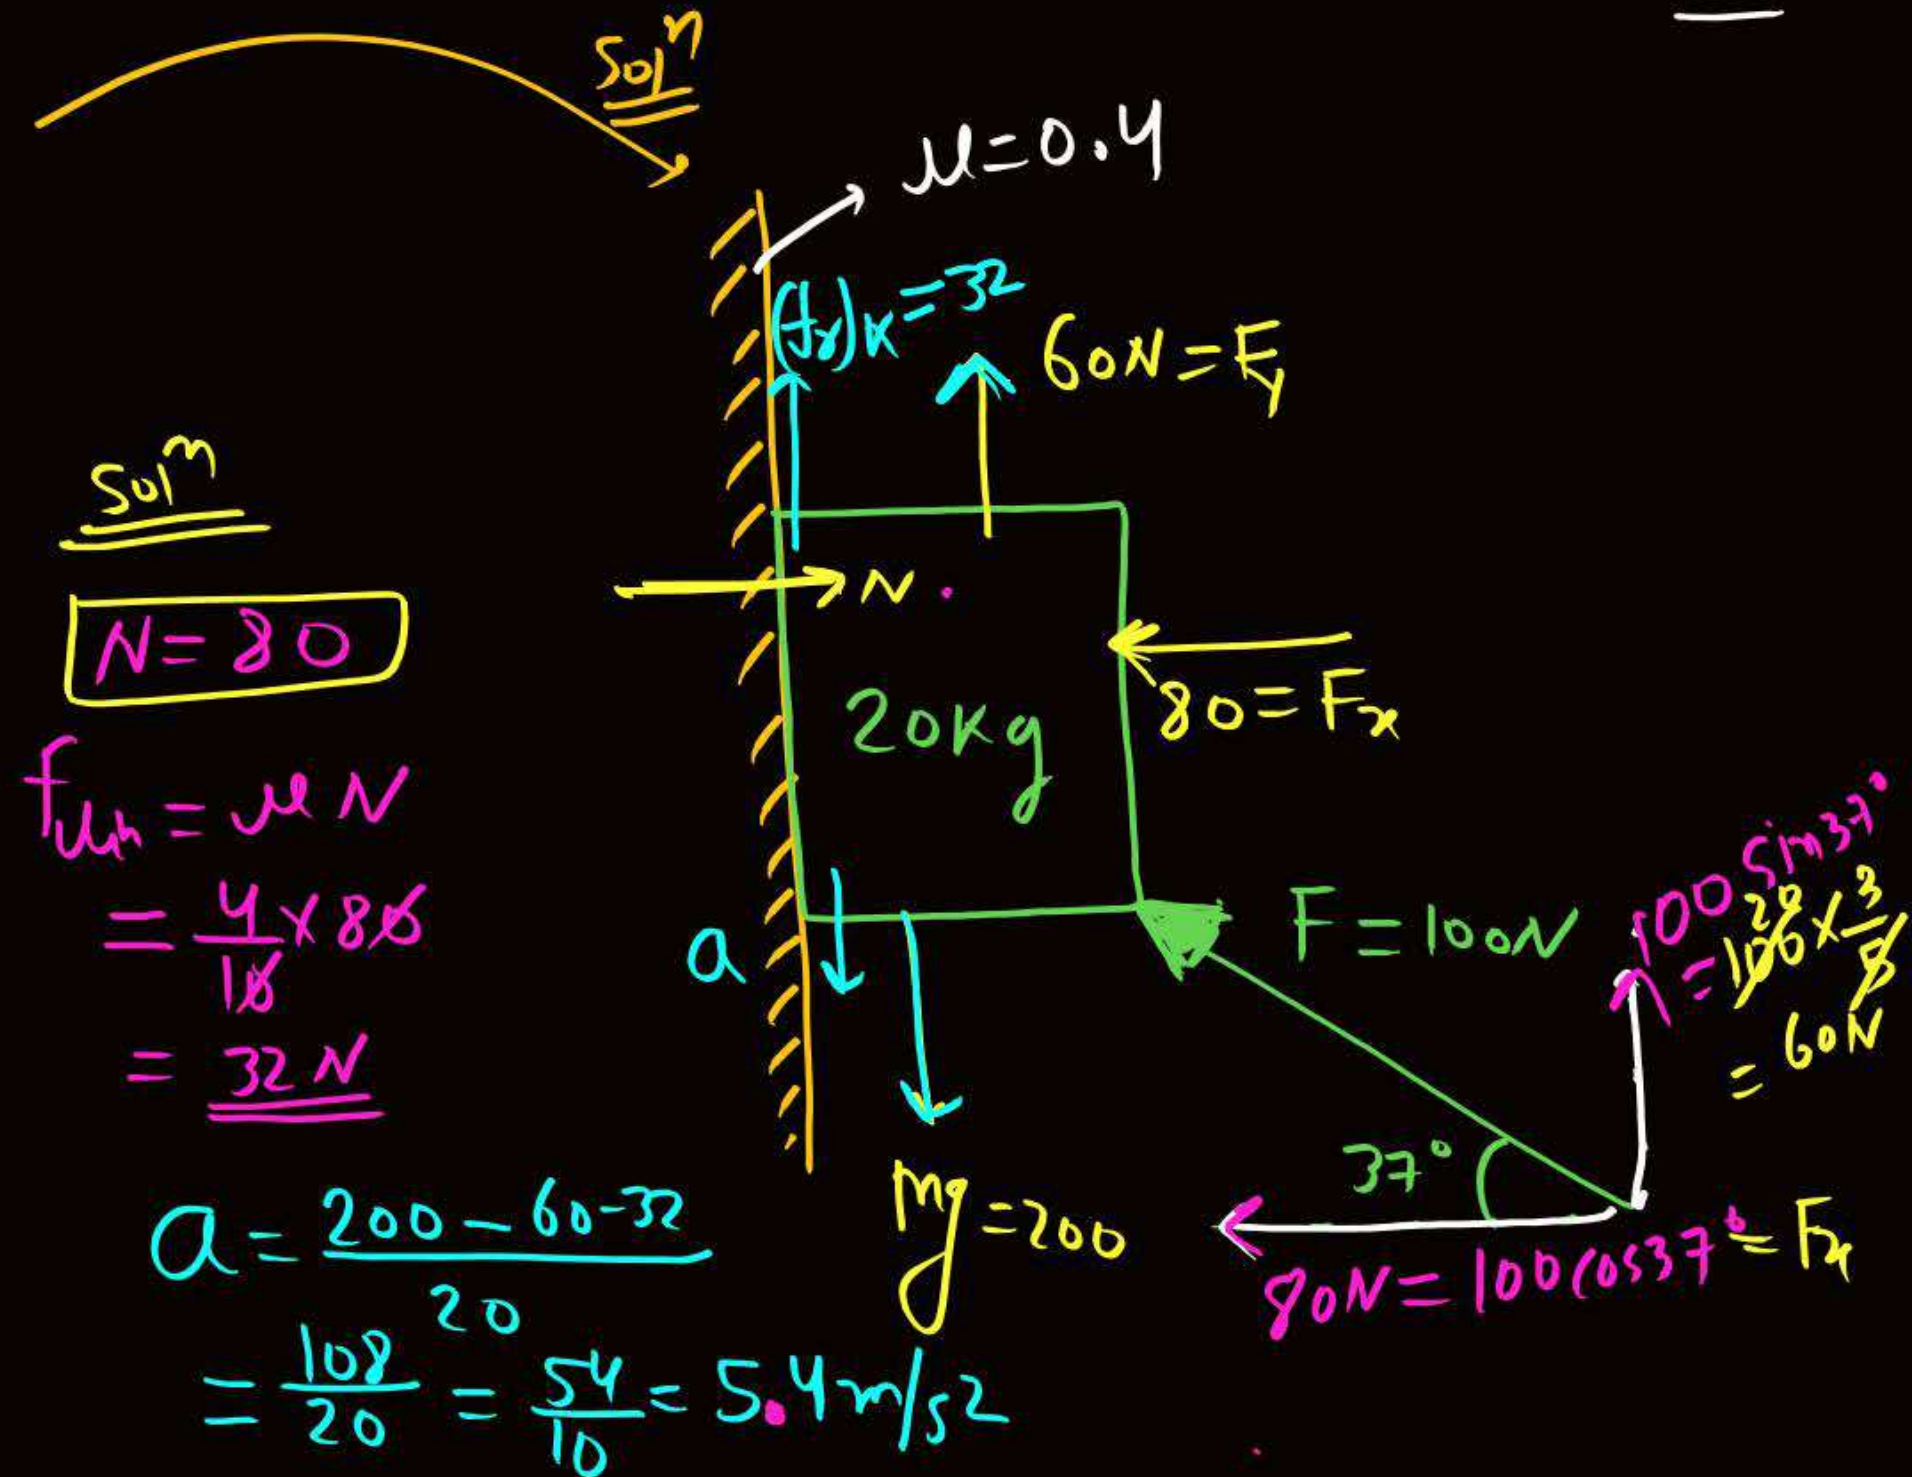 Solⁿ
μ=0.4
(fr)K=32
60N=Fy
Solⁿ
N=80
N
80=Fx
20Kg
= μN
= 4/10 × 80
= 32N
a
F=100N
100 sin37°
= 100 20 × 3/5
= 60N
37°
mg=200
80N=100cos37°=Fx
a = 200-60-32/20
= 108/20 = 54/10 = 5.4m/s2